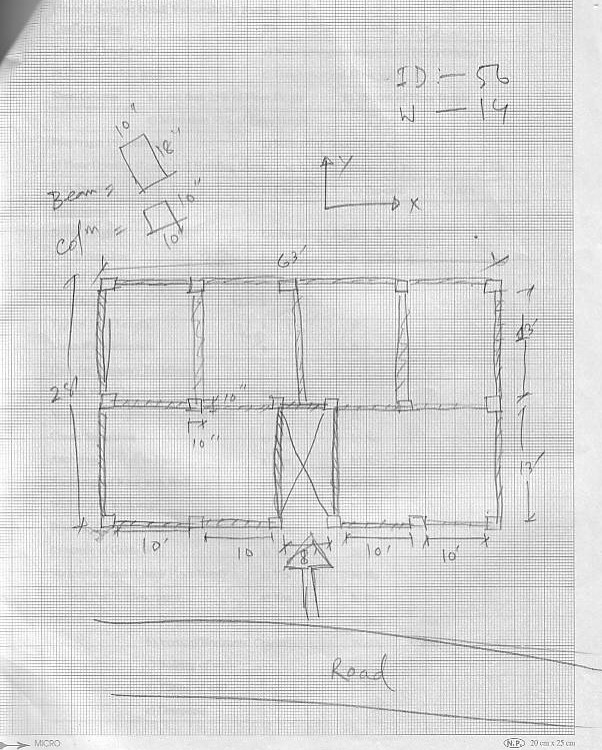 ID :- 56
W - 14
10" 18"
Beam =
10"
Colm =
10"
Y
X
63'
13'
28'
10"
10"
13'
10' 10 8' 10' 10'
Road
MICRO N.P. 20 cm x 25 cm